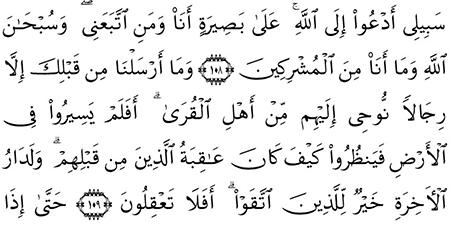 سَبِيلِىٓ أَدْعُوٓا۟ إِلَى ٱللَّهِ ۚ عَلَىٰ بَصِيرَةٍ أَنَا۠ وَمَنِ ٱتَّبَعَنِى ۖ وَسُبْحَـٰنَ
ٱللَّهِ وَمَآ أَنَا۠ مِنَ ٱلْمُشْرِكِينَ ﴿١٠٨﴾ وَمَآ أَرْسَلْنَا مِن قَبْلِكَ إِلَّا
رِجَالًا نُّوحِىٓ إِلَيْهِم مِّنْ أَهْلِ ٱلْقُرَىٰٓ ۗ أَفَلَمْ يَسِيرُوا۟ فِى
ٱلْأَرْضِ فَيَنظُرُوا۟ كَيْفَ كَانَ عَـٰقِبَةُ ٱلَّذِينَ مِن قَبْلِهِمْ ۗ وَلَدَارُ
ٱلْـَٔاخِرَةِ خَيْرٌ لِّلَّذِينَ ٱتَّقَوْا۟ ۗ أَفَلَا تَعْقِلُونَ ﴿١٠٩﴾ حَتَّىٰٓ إِذَا